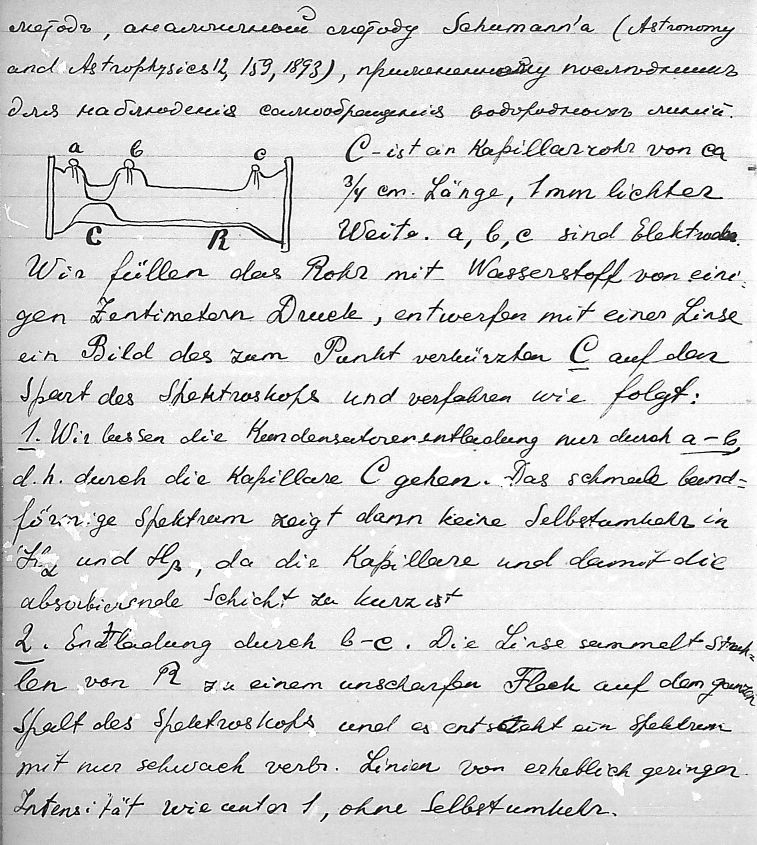 методъ, аналогичный методу Schumann'a (Astronomy
and Astrophysics 12, 159, 1893), примененному последнимъ
для наблюденія самообращенія водородныхъ линій.
a b c
C R
C - ist ein Kapillarrohr von ca
3/4 cm. Länge, 1 mm lichter
Weite. a, b, c sind Elektroden.
Wir füllen das Rohr mit Wasserstoff von eini-
gen Zentimetern Druck, entwerfen mit einer Linse
ein Bild des zum Punkt verkürzten C auf den
Spart des Spektroskops und verfahren wie folgt:
1. Wir lassen die Kondensatorenentladung nur durch a-b,
d.h. durch die Kapillare C gehen. Das schmale band=
förmige Spektrum zeigt dann keine Selbstumkehr in
Hα und Hβ, da die Kapillare und damit die
absorbierende Schicht zu kurz ist
2. Entladung durch b-c. Die Linse sammelt Strah-
len von R zu einem unscharfen Fleck auf dem ganzen
Spalt des Spektroskops und es entsteht ein Spektrum
mit nur schwach verbr. Linien von erheblich geringer
Intensität wie unter 1, ohne Selbstumkehr.